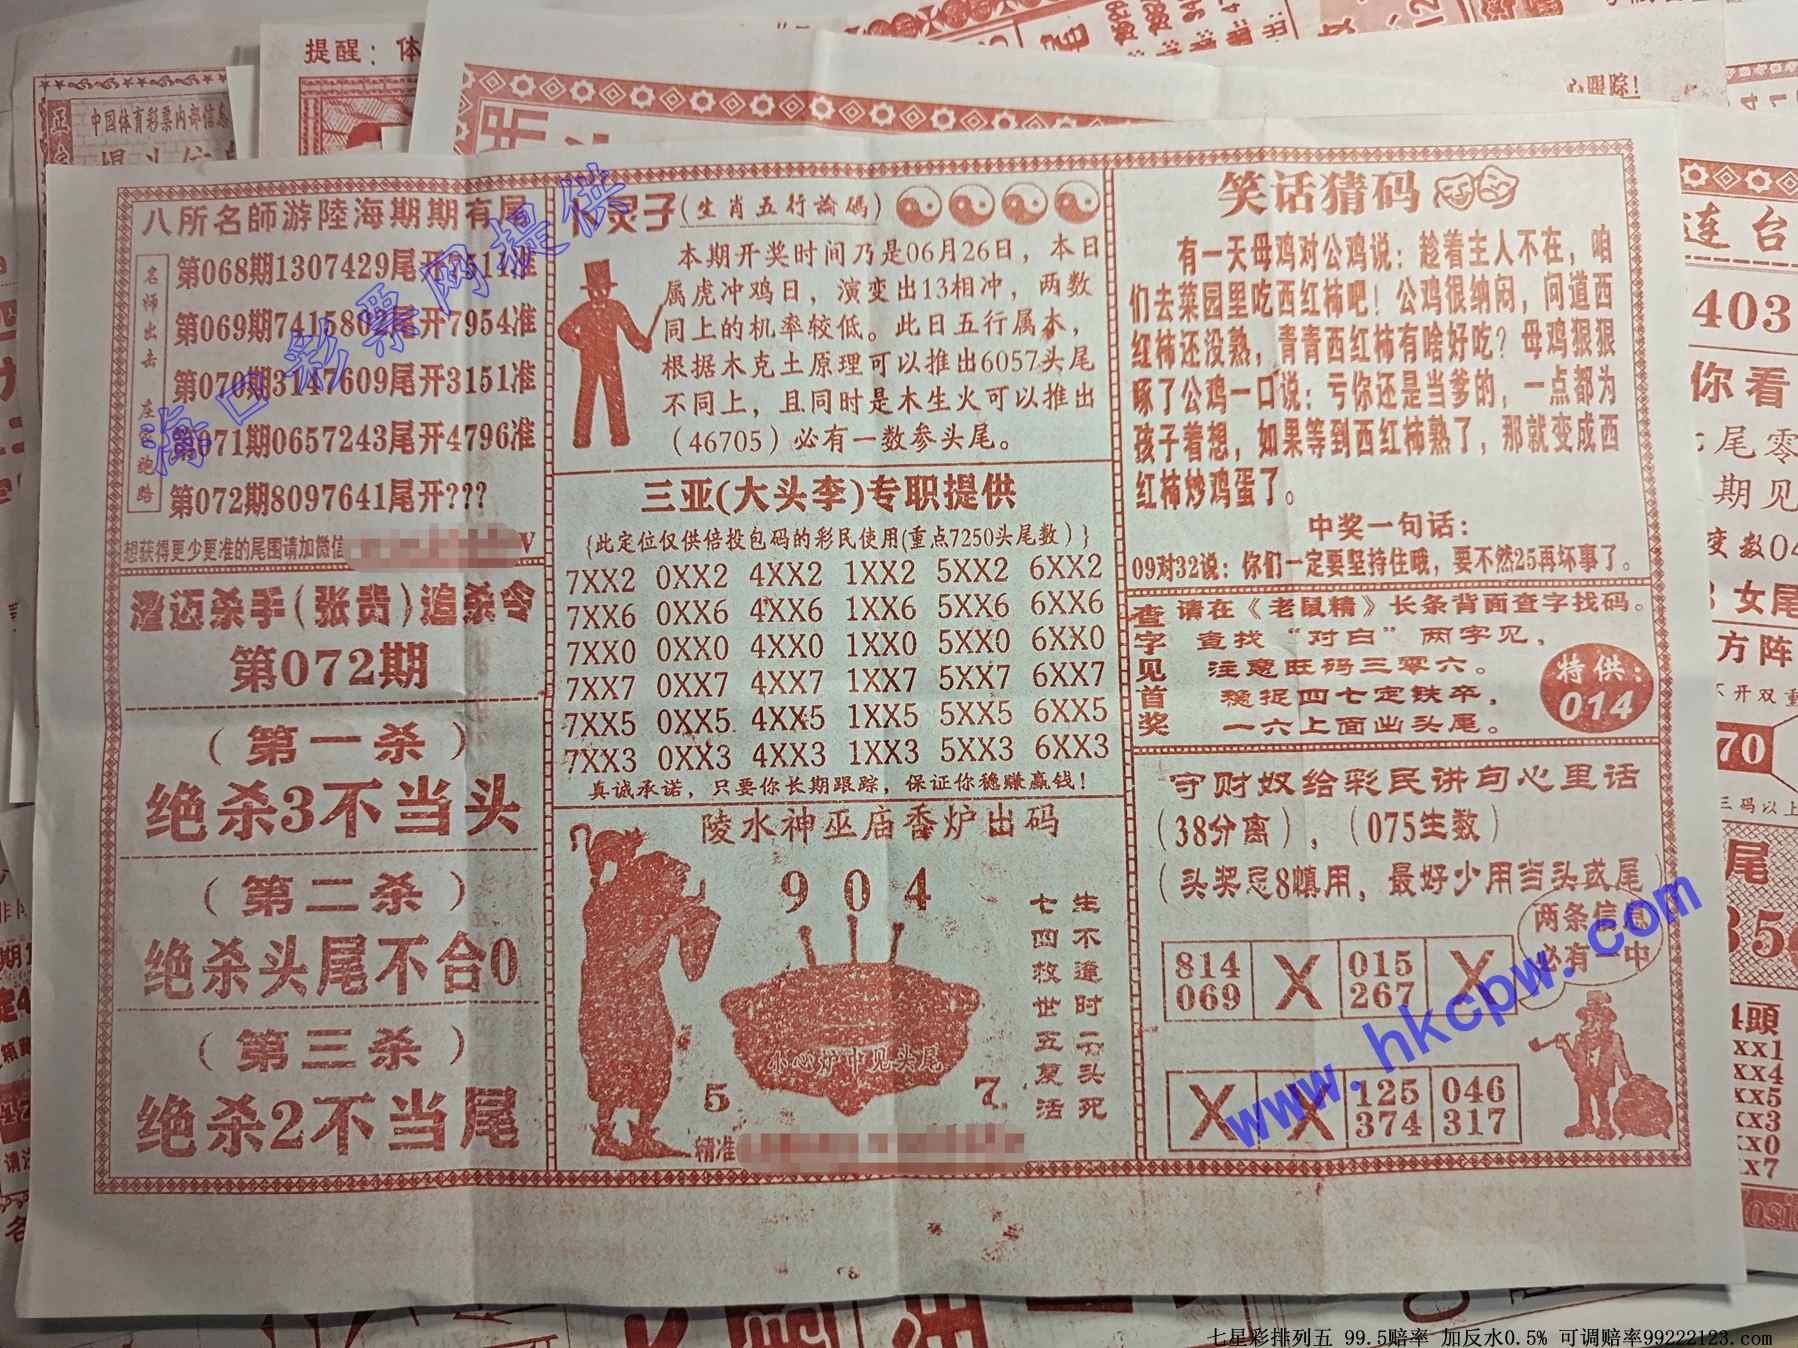 提醒：体
中国体育彩票内部信息
八所名師游陸海期期有尾
名师出击
第068期1307429尾开
第069期
尾开7954准
第070期3147609尾开3151准
第071期0657243尾开4796准
第072期8097641尾开???
想获得更少更准的尾围请加微信
澄迈杀手(张贵)追杀令
第072期
(第一杀)
绝杀3不当头
(第二杀)
绝杀头尾不合0
(第三杀)
绝杀2不当尾
灵子(生肖五行論碼)
本期开奖时间乃是06月26日，本日
属虎冲鸡日，演变出13相冲，两数
同上的机率较低。此日五行属木，
根据木克土原理可以推出6057头尾
不同上，且同时是木生火可以推出
(46705)必有一数参头尾。
三亚(大头李)专职提供
{此定位仅供倍投包码的彩民使用(重点7250头尾数)}
7XX2 0XX2 4XX2 1XX2 5XX2 6XX2
7XX6 0XX6 4XX6 1XX6 5XX6 6XX6
7XX0 0XX0 4XX0 1XX0 5XX0 6XX0
7XX7 0XX7 4XX7 1XX7 5XX7 6XX7
7XX5 0XX5 4XX5 1XX5 5XX5 6XX5
7XX3 0XX3 4XX3 1XX3 5XX3 6XX3
真诚承诺，只要你长期跟踪，保证你稳赚赢钱！
陵水神巫庙香炉出码
9 0 4
小心炉中见头尾
5
7
生不逢时二头死
七四救世五复活
精准
笑话猜码
有一天母鸡对公鸡说：趁着主人不在，咱
们去菜园里吃西红柿吧！公鸡很纳闷，问道西
红柿还没熟，青青西红柿有啥好吃？母鸡狠狠
啄了公鸡一口说：亏你还是当爹的，一点都为
孩子着想，如果等到西红柿熟了，那就变成西
红柿炒鸡蛋了。
中奖一句话：
09对32说：你们一定要坚持住哦，要不然25再坏事了。
查字见首奖
请在《老鼠精》长条背面查字找码。
查找“对白”两字见，
注意旺码三零六。
稳捉四七定铁卒，
一六上面出头尾。
特供：
014
守财奴给彩民讲句心里话
(38分离)，(075生数)
(头奖忌8慎用，最好少用当头或尾)
两条信息
必有一中
814 X 015 X
069 267
X X 125 046
374 317
连台
403
你看
尾零
期见
变数04
女尾
方阵
不开双重
70
三码以上
尾
35
头
xx1
xx4
xx5
xx3
xx0
xx7
海口彩票网提供
www.hkcpw.com
七星彩排列五 99.5赔率 加反水0.5% 可调赔率99222123.com